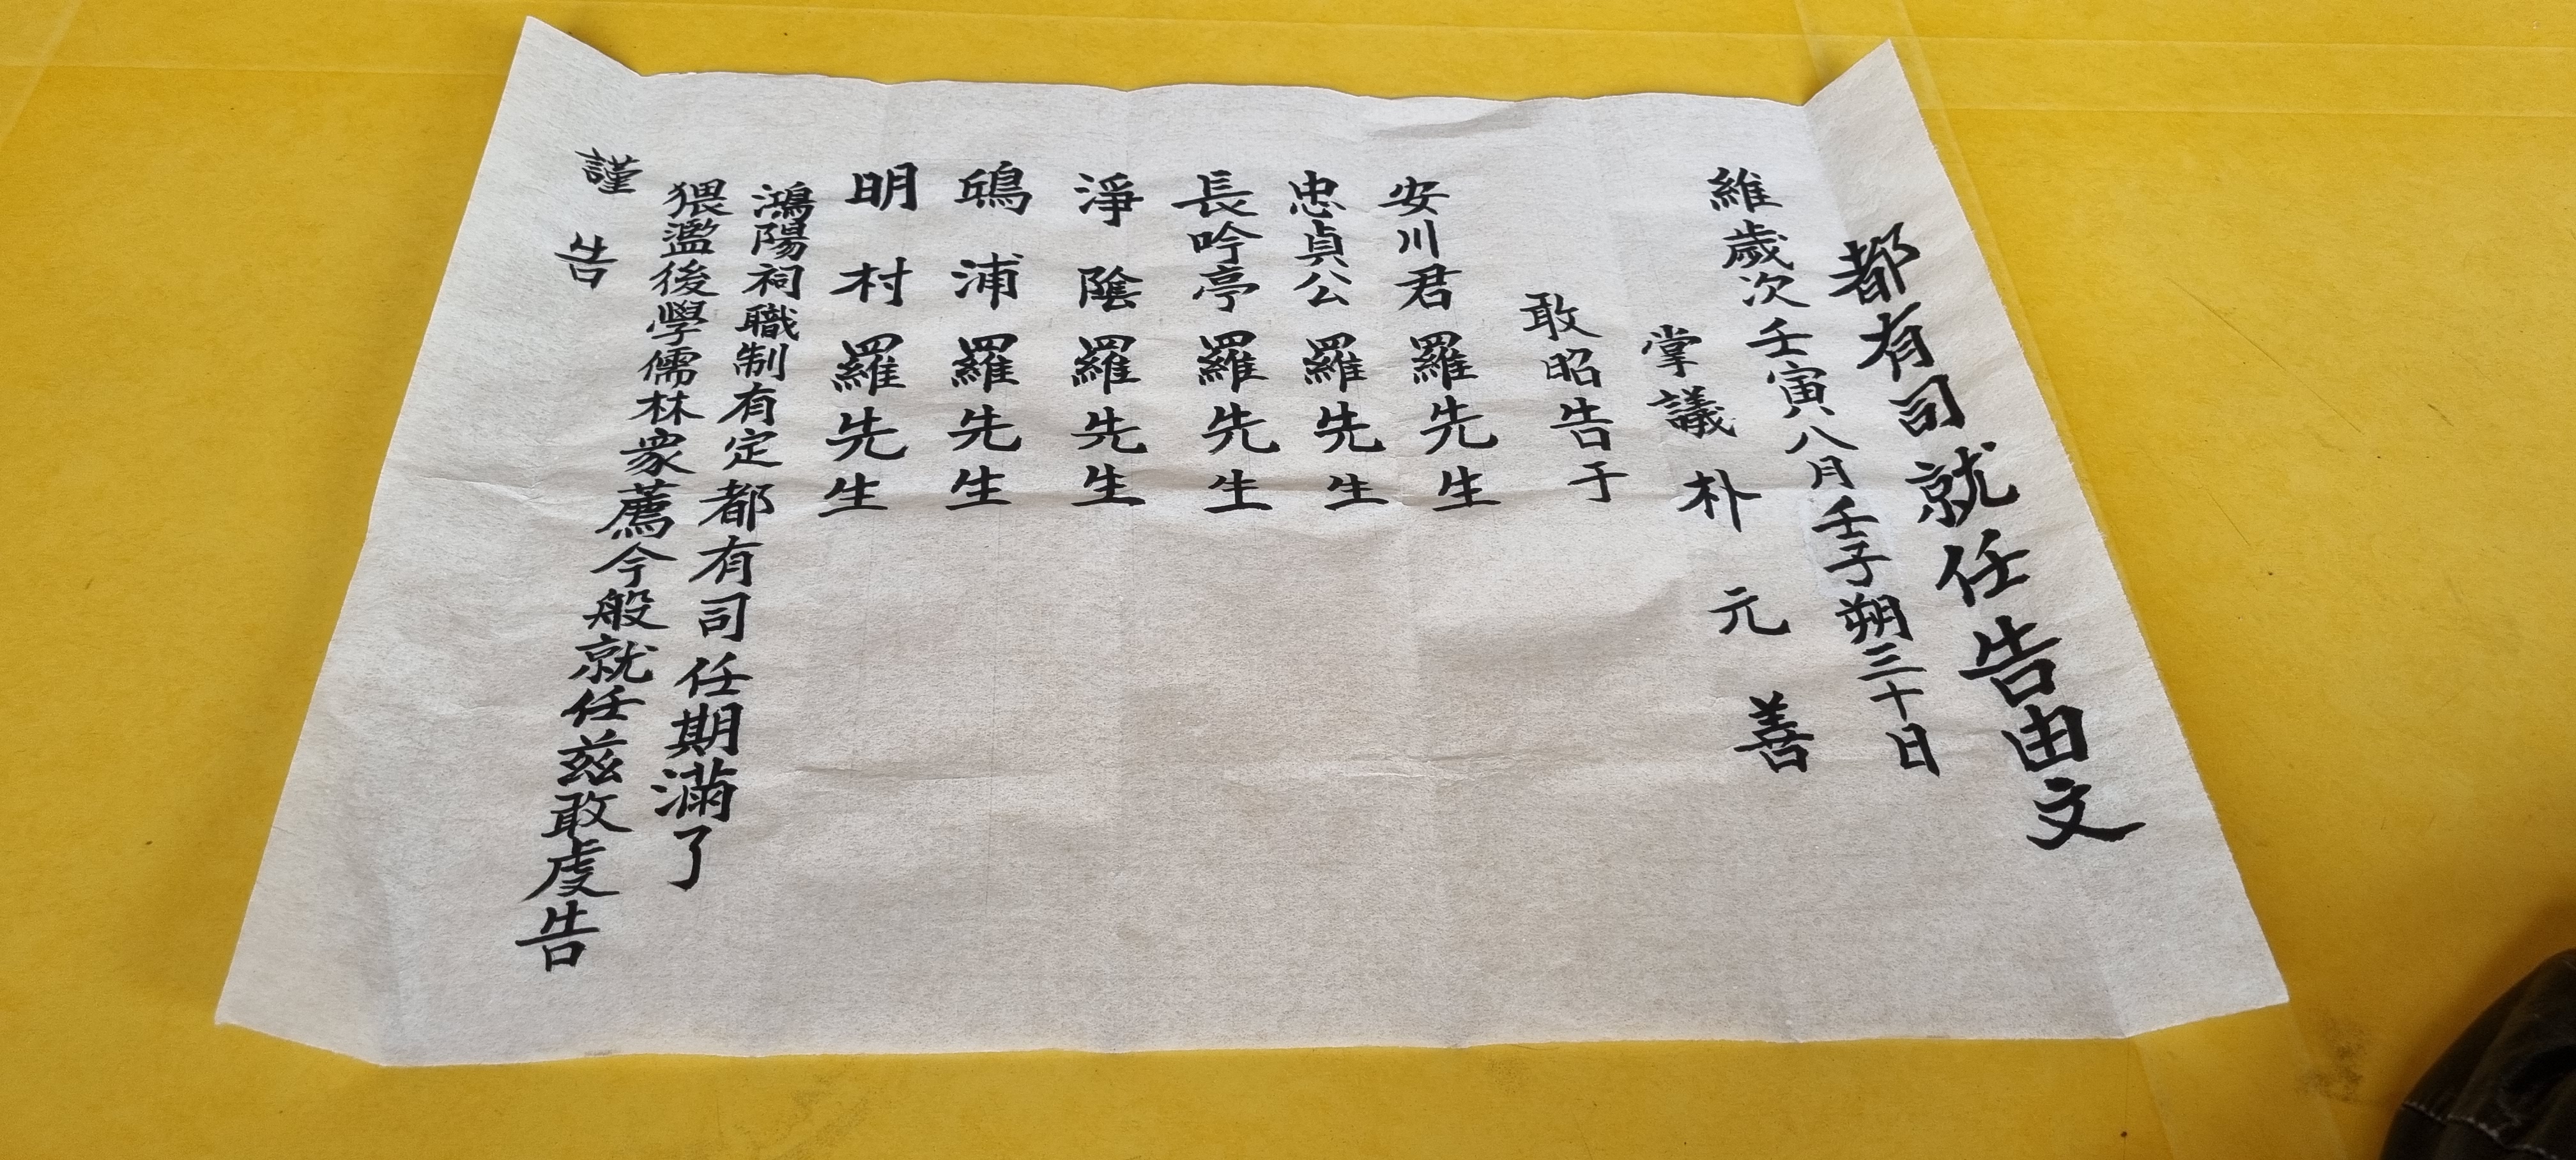 都有司就任告由文
維歲次壬寅八月壬子朔三十日
掌議 朴 元 善
敢昭告于
安川君羅先生
忠貞公羅先生
長吟亭羅先生
淨陰羅先生
鴟浦羅先生
明村羅先生
鴻陽祠職制有定都有司任期滿了
猥濫後學儒林衆薦今般就任玆敢虔告
謹告